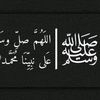 اللهم صل وسلم
على نبينا محمد
صلى الله عليه وسلم